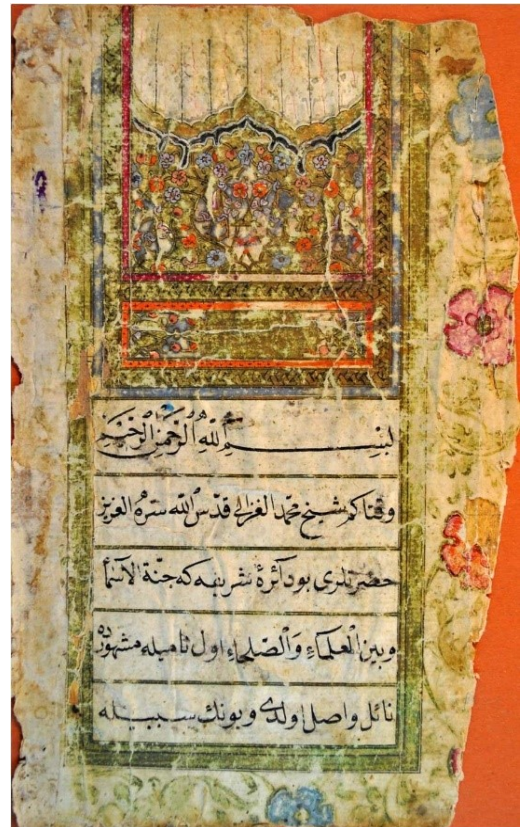 بسم الله الرحمن الرحيم
وقتاكم شيخ محمد الغزالي قدس الله سره العزيز
حضرتلرى بو دائرۀ شريفه كه جنة الاسماء
وبين العلماء والصلحاء اول ناميله مشهوده
نائل واصل اولدى وبونك سببيله